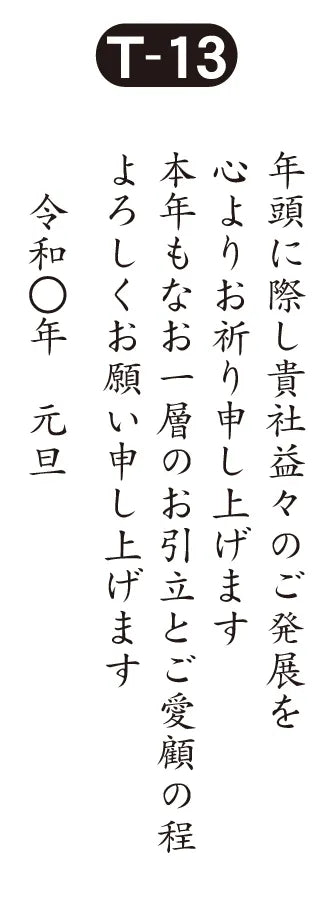 T-13
年頭に際し貴社益々のご発展を
心よりお祈り申し上げます
本年もなお一層のお引立とご愛顧の程
よろしくお願い申し上げます
令和〇年　元旦